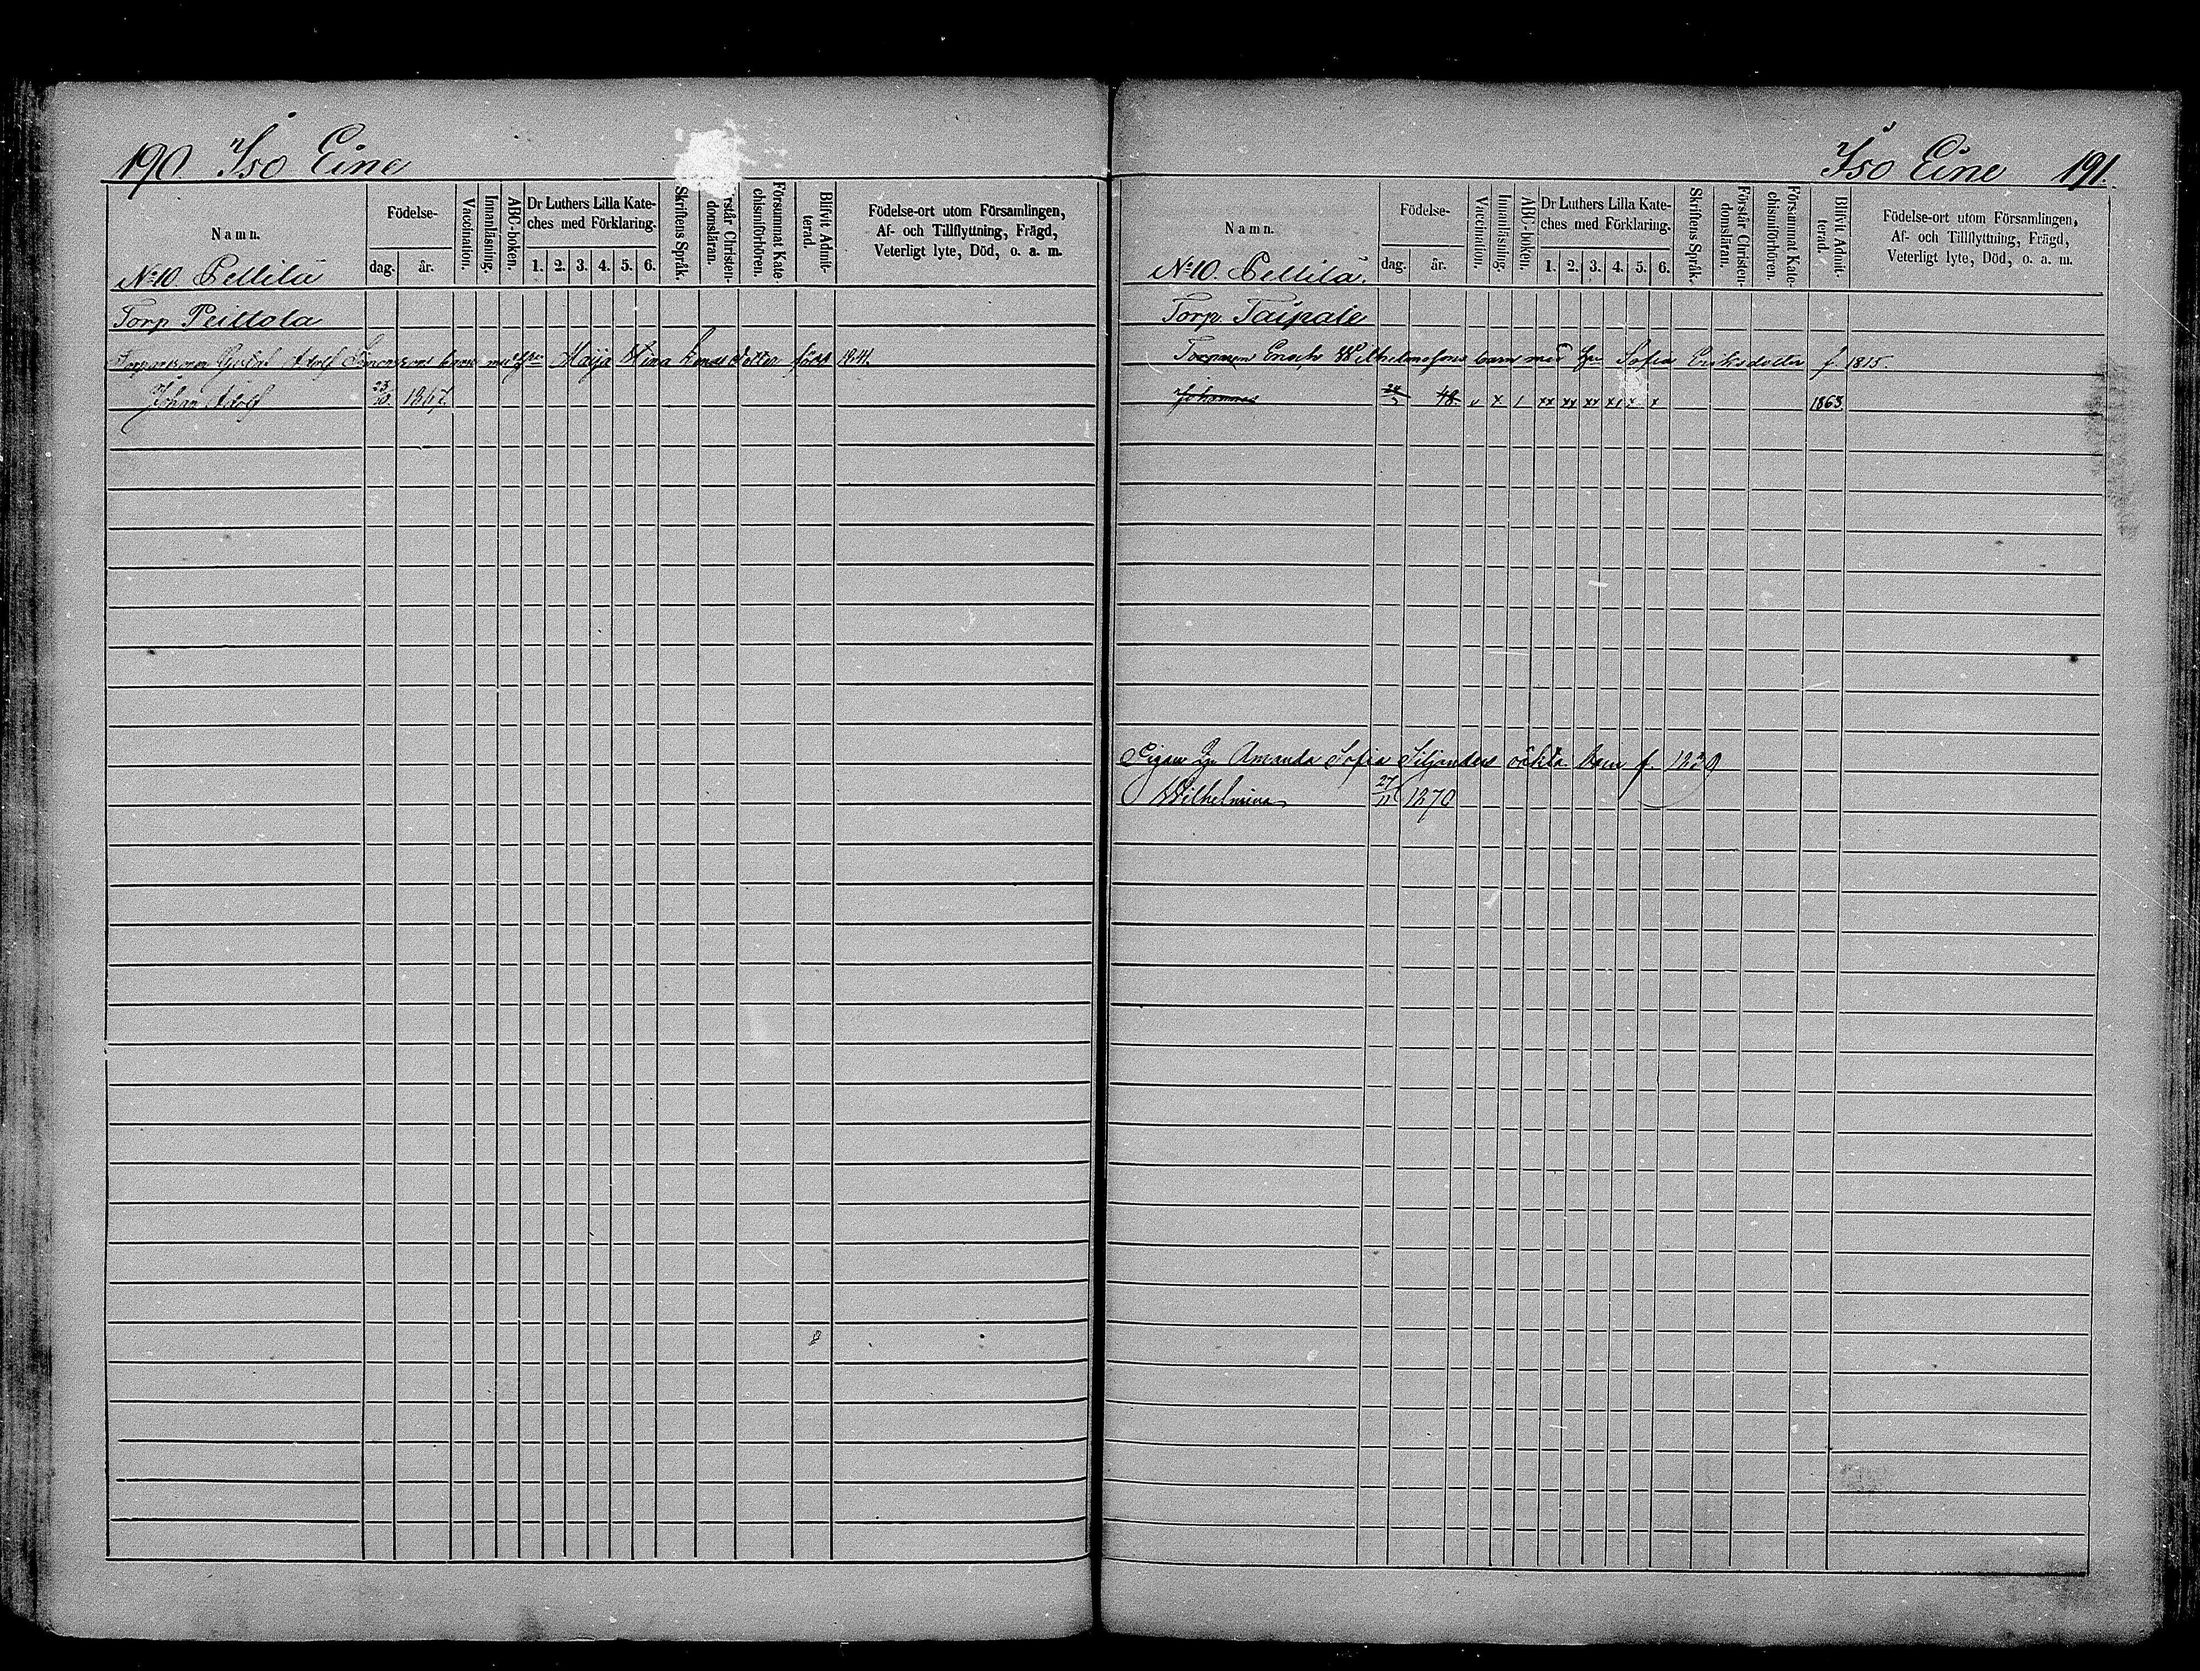 190 Iso Eine
Namn.
Födelse-
dag. år.
Vaccination.
Innanläsning.
ABC-boken.
Dr Luthers Lilla Kate-
ches med Förklaring.
1. 2. 3. 4. 5. 6.
Skriftens Språk.
rstår Christen-
domsläran.
Försummat Kate
chismiförhören.
Blifvit Admit-
terad.
Födelse-ort utom Församlingen,
Af- och Tillflyttning, Frägd,
Veterligt lyte, Död, o. a. m.
No 10 Pellilä
Torp Peiltola
Gustaf Adolf barn med Maija Stina född 1841
Johan Adolf 23/10 1867
Iso Eine 191.
Namn.
Födelse-
dag. år.
Vaccination.
Innanläsning.
ABC-boken.
Dr Luthers Lilla Kate-
ches med Förklaring.
1. 2. 3. 4. 5. 6.
Skriftens Språk.
Förstår Christen-
domsläran.
Försummat Kate-
chismiförhören.
Blifvit Admit-
terad.
Födelse-ort utom Församlingen,
Af- och Tillflyttning, Frägd,
Veterligt lyte, Död, o. a. m.
No 10 Pellilä.
Torp Taipale
Enochs Wilhelmssons barn med Hu Sofia Eriksdotter f. 1815.
Johannes 48 v x 1 xx xx xx x x x 1863
Amanda Sofia Siljanders oäkta barn f. 1839
Wilhelmina 27/11 1870